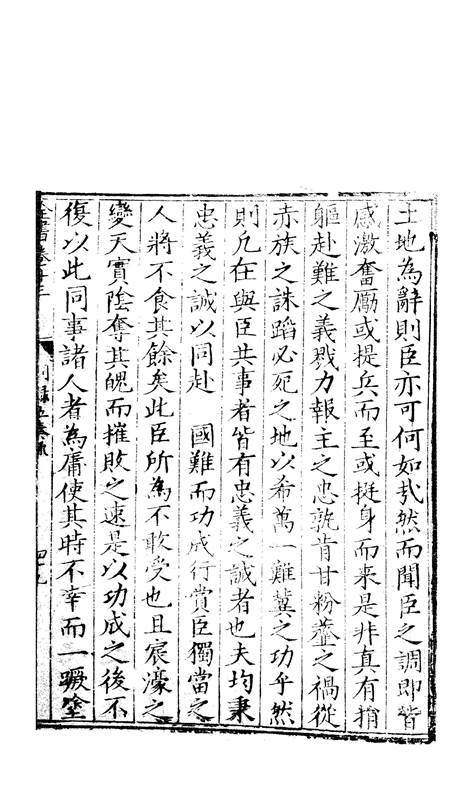 土地為辭則臣亦可何如㢤然而聞臣之調即皆
感激奮勵或提兵而至或挺身而来是非真有捐
軀赴難之義戮力報主之忠孰肯甘粉虀之禍從
赤族之誅蹈必死之地以希萬一難冀之功乎然
則凢在與臣共事者皆有忠義之誠者也夫均秉
忠義之誠以同赴　國難而功成行賞臣獨當之
人將不食其餘矣此臣所為不敢受也且宸濠之
變天實陰奪其魄而摧敗之速是以功成之後不
復以此同事諸人者為庸使其時不幸而一蹶塗
全書卷十三　別録五奏疏　四十九